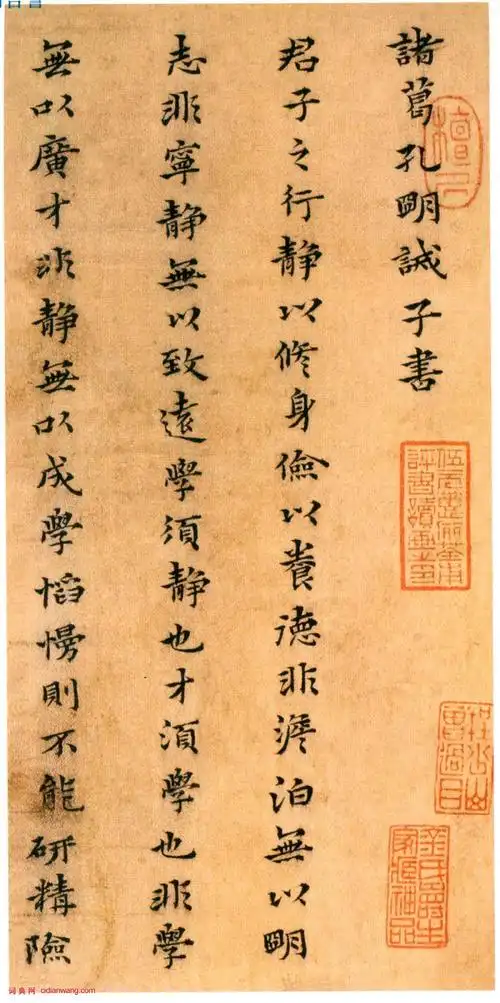 諸葛孔明誡子書
君子之行静以脩身儉以養德非澹泊無以明
志非寧静無以致遠學須静也才須學也非學
無以廣才非静無以成學慆慢則不能研精險
词典网 cidianwang.com